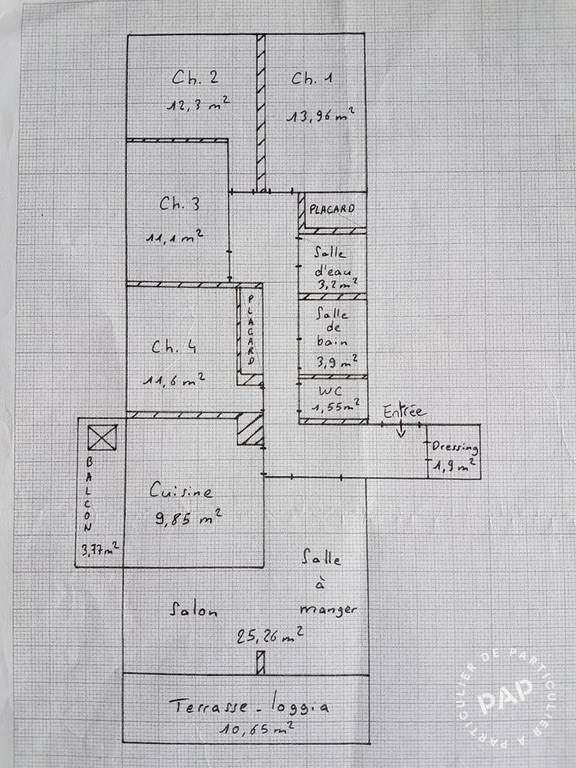 Ch. 2
12,3 m²
Ch. 1
13,96 m²
PLACARD
Ch. 3
11,1 m²
Salle
d'eau
3,2 m²
PLACARD
Salle
de
bain
3,9 m²
Ch. 4
11,6 m²
WC
1,55 m²
Entrée
Dressing
1,9 m²
BALCON
3,77 m²
Cuisine
9,85 m²
Salle
à
manger
Salon
25,26 m²
Terrasse - loggia
10,65 m²
DE PARTICULIER À PARTICULIER
PAP